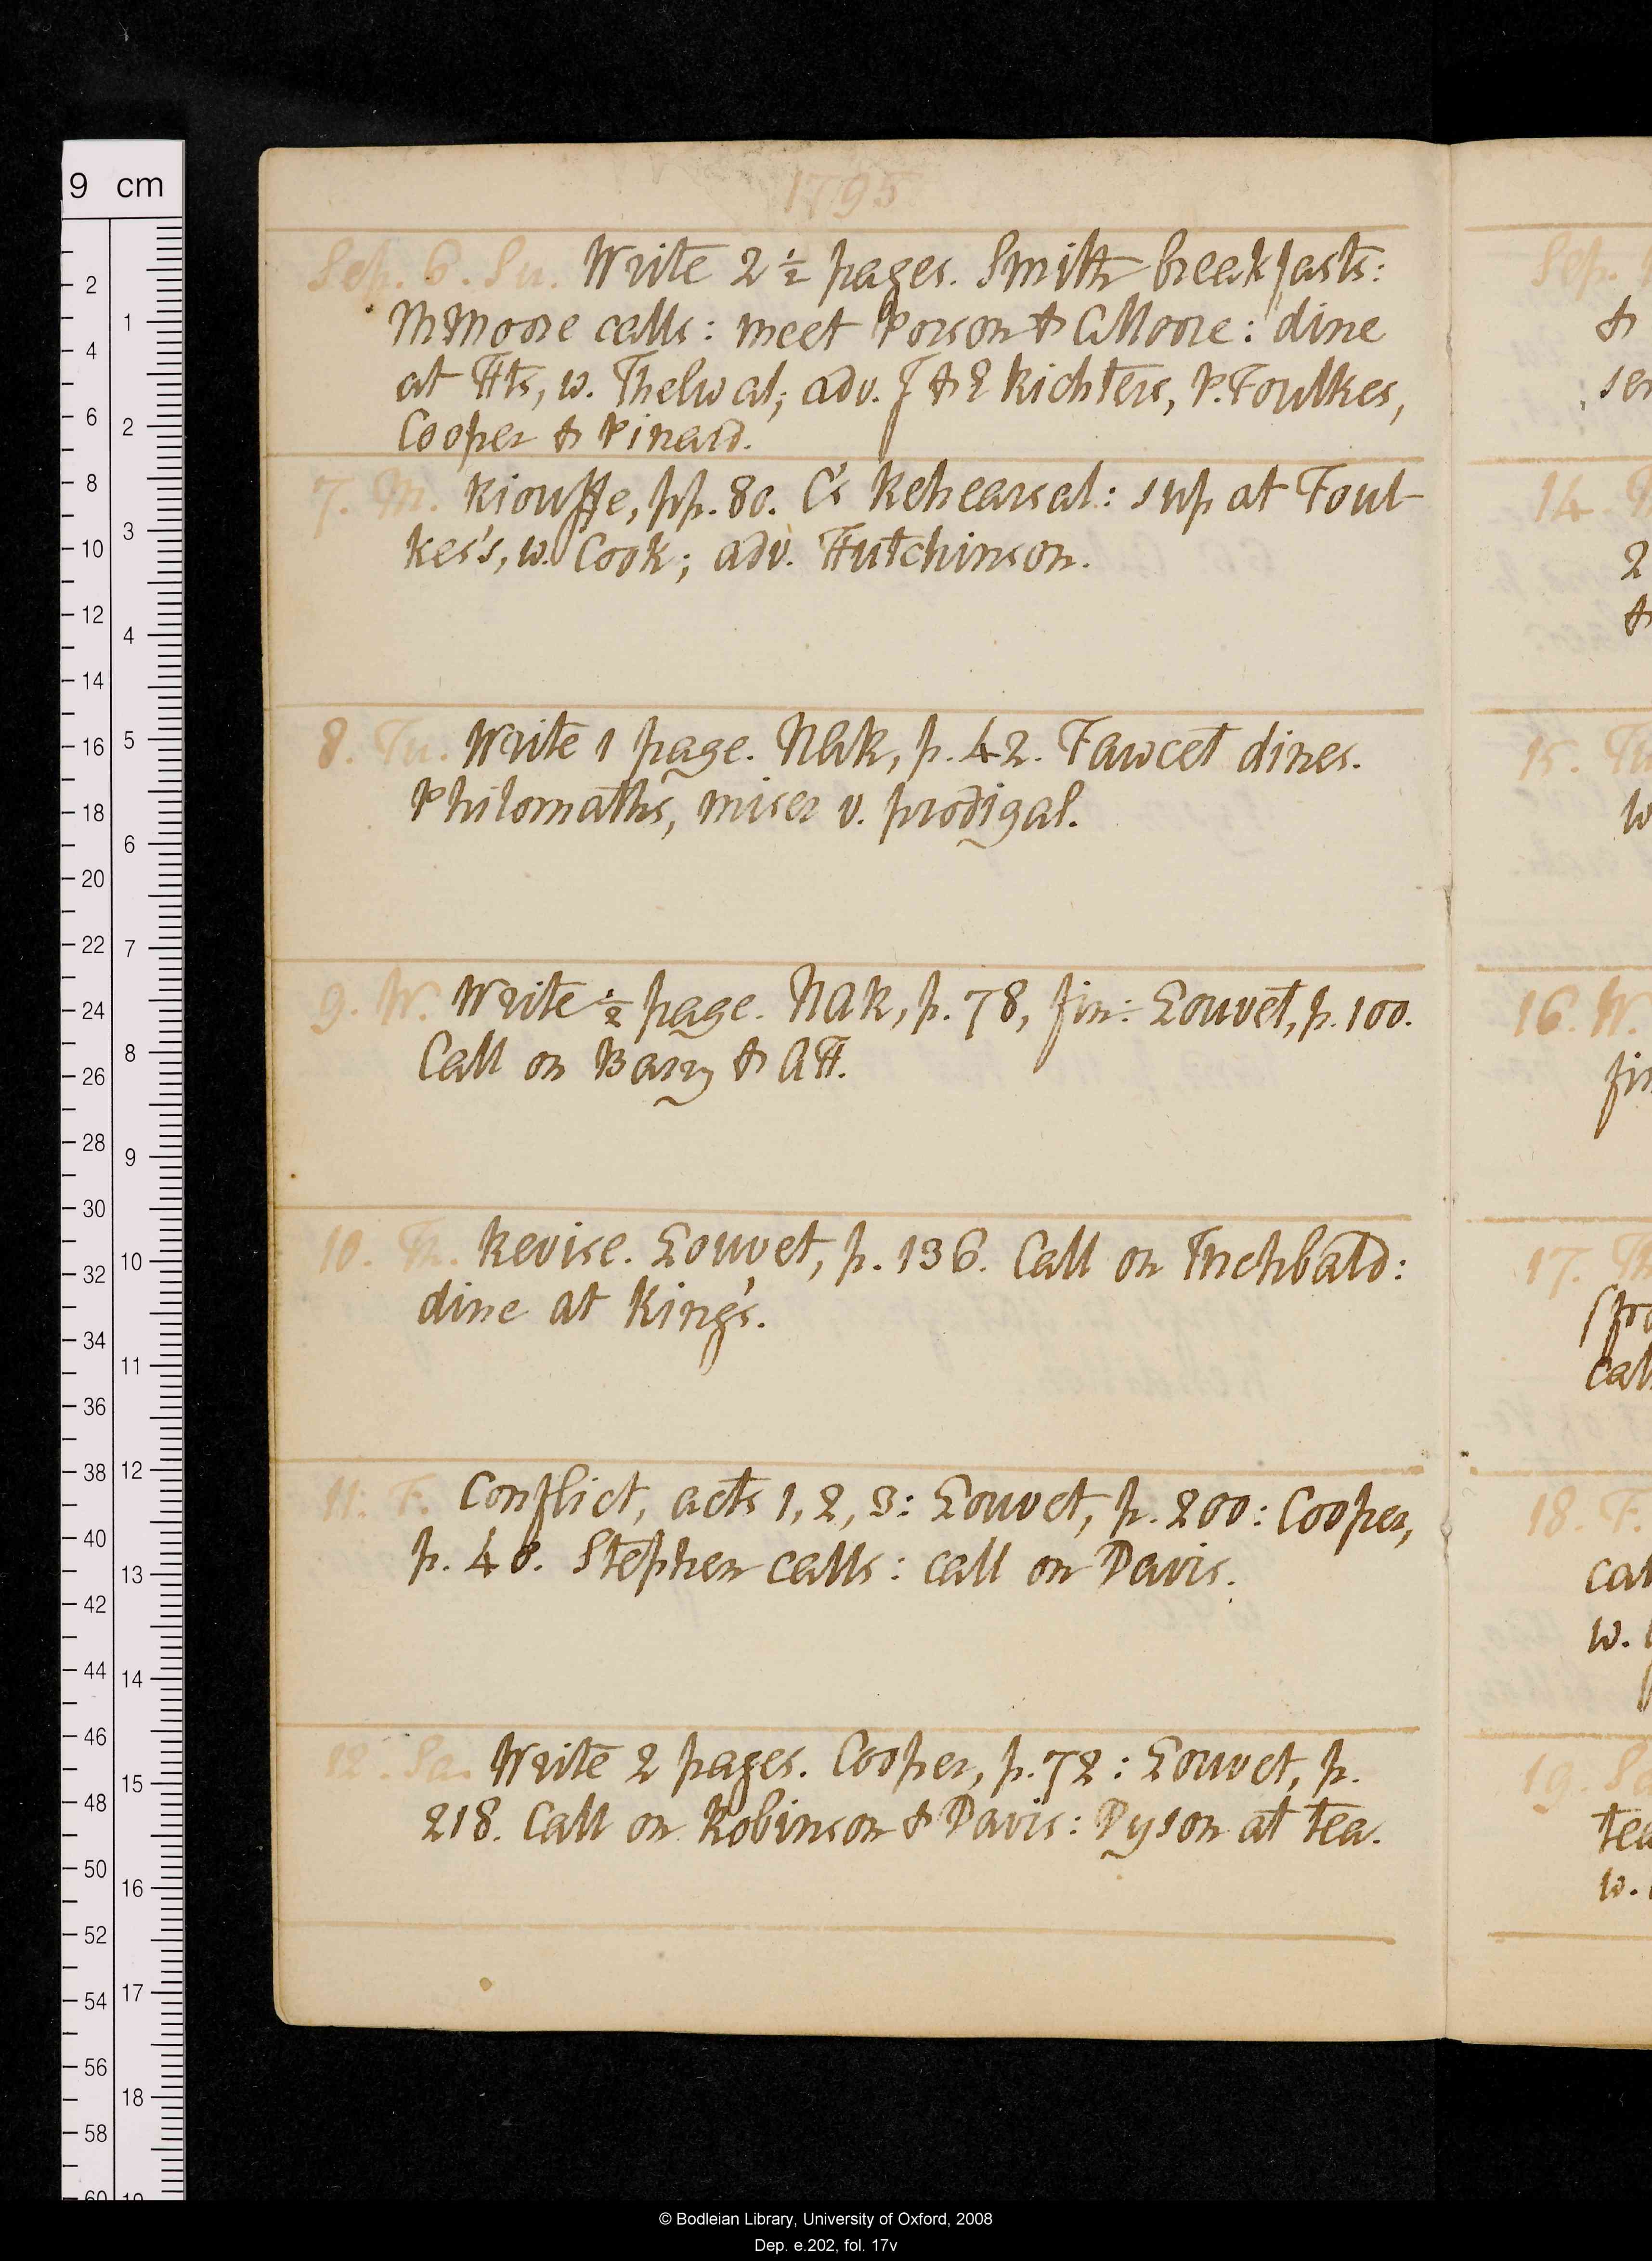 1795
Sep. 6. Su. Write 2 ½ pages. Smith breakfasts:
MMoore calls: meet Porson & CMoore: dine
at Hts, w. Thelwal; adv. J & E Richters, P. Foulkes,
Cooper & Pinard.
7. M. Riouffe, pp. 80. C's Rehearsal: sup at Foul-
kes's, w. Cook; adv. Hutchinson.
8. Tu. Write 1 page. p. 42. Fawcet dines.
Philomaths, miser v. prodigal.
9. W. Write ½ page. p. 78, fin: Louvet, p. 100.
Call on Barry & AH.
10. Th. Revise. Louvet, p. 136. Call on Inchbald:
dine at King's.
11. F. Conflict, acts 1, 2, 3: Louvet, p. 200: Cooper,
p. 40. Stephen calls: call on Davis.
12. Sa. Write 2 pages. Cooper, p. 72: Louvet, p.
218. Call on Robinson & Davis: Dyson at tea.
Sep.
&
14.
2
&
15. Tu
w
16. W.
fin
17. Th
call
18. F.
w.
19. Sa
tea
w.
9 cm
© Bodleian Library, University of Oxford, 2008
Dep. e.202, fol. 17v